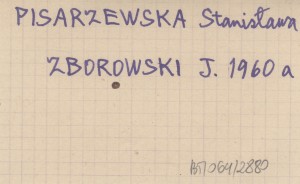 PISARZEWSKA Stanisława
ZBOROWSKI J. 1960 a